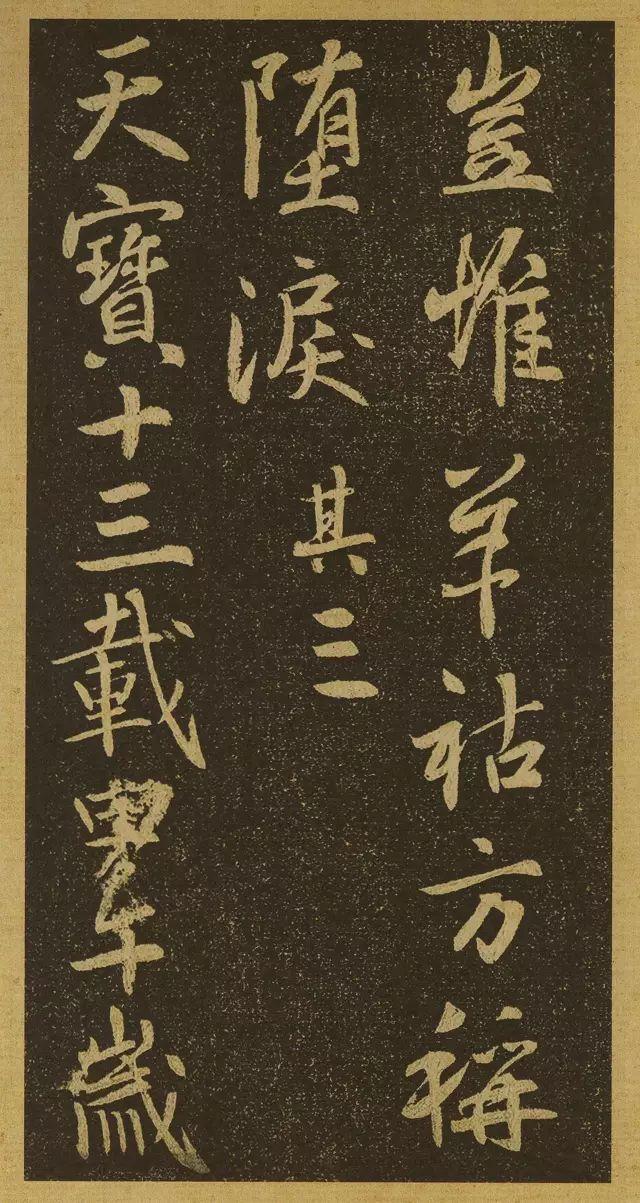 豈惟羊祜方稱
堕淚 其三
天寶十三載甲午歲